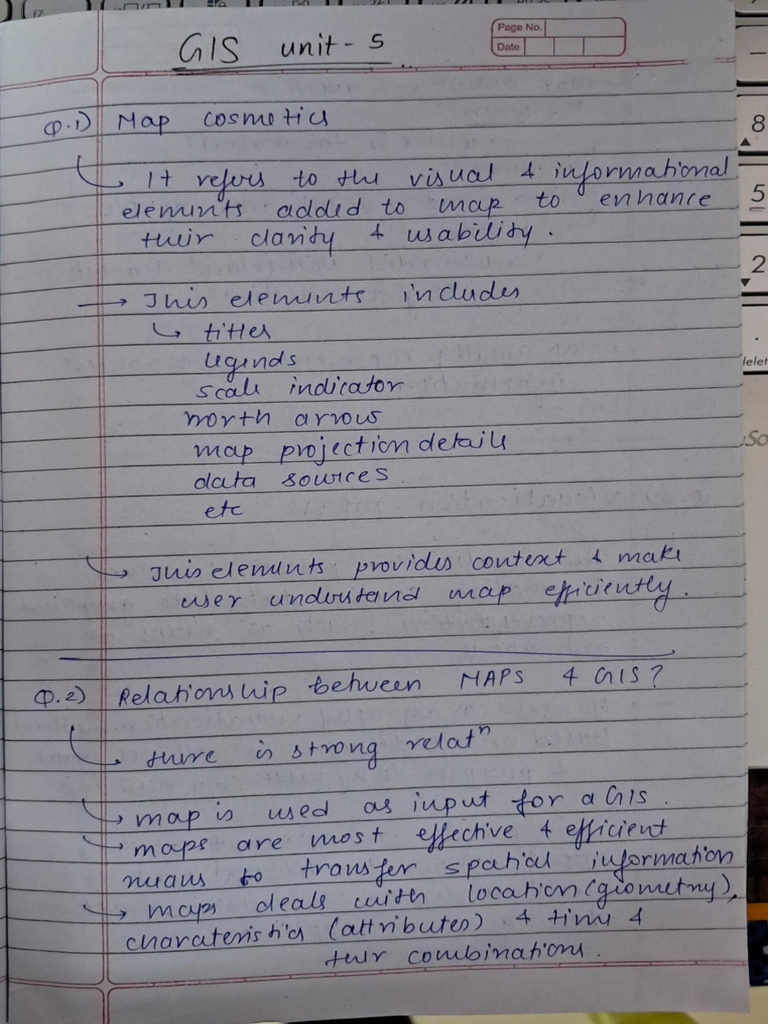 GIS unit - 5
Page No.
Date
Q.1) Map cosmetics
↳ It refers to the visual & informational
elements added to map to enhance
their clarity & usability.
→ This elements includes
↳ titles
legends
scale indicator
north arrow
map projection details
data sources
etc
↳ This elements provides context & make
user understand map efficiently.
Q.2) Relationship between MAPS & GIS?
↳ there is strong relatⁿ
↳ map is used as input for a GIS.
↳ maps are most effective & efficient
means to transfer spatial information
↳ maps deals with location (geometry),
charateristics (attributes) & time &
their combinations.
8
5
2